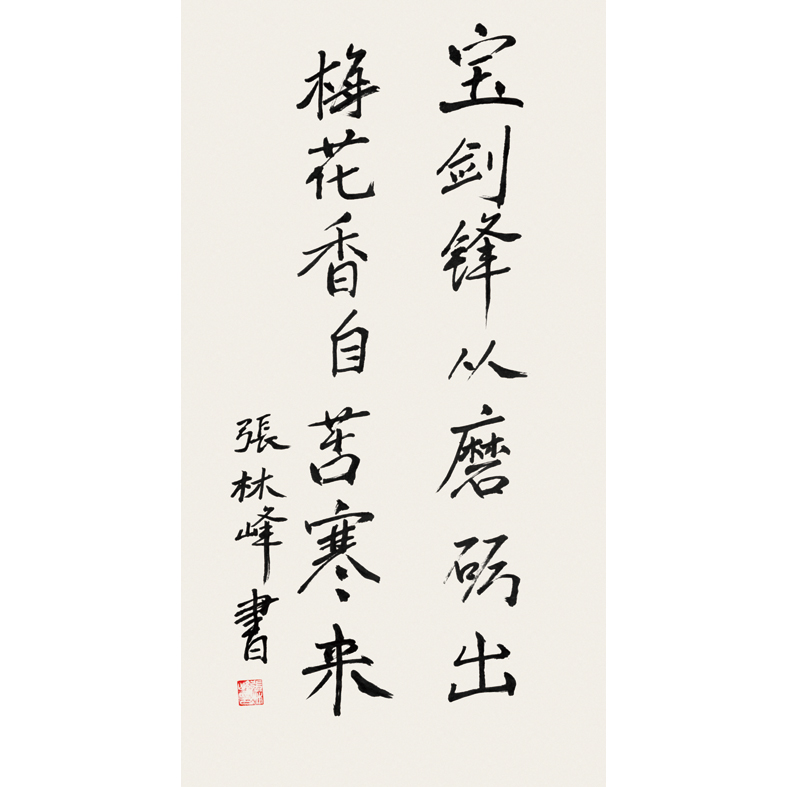 宝剑锋从磨砺出
梅花香自苦寒来
張林峰書